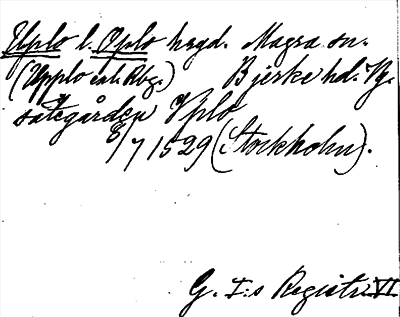 Uplo l. Oplo hrgd. Magra sn.
(Upplo enl. Rbg.) Bjerke hd. Vg.
sätegården Oplo
8/7 1529 (Stockholm).
G. I:s Registr. VI